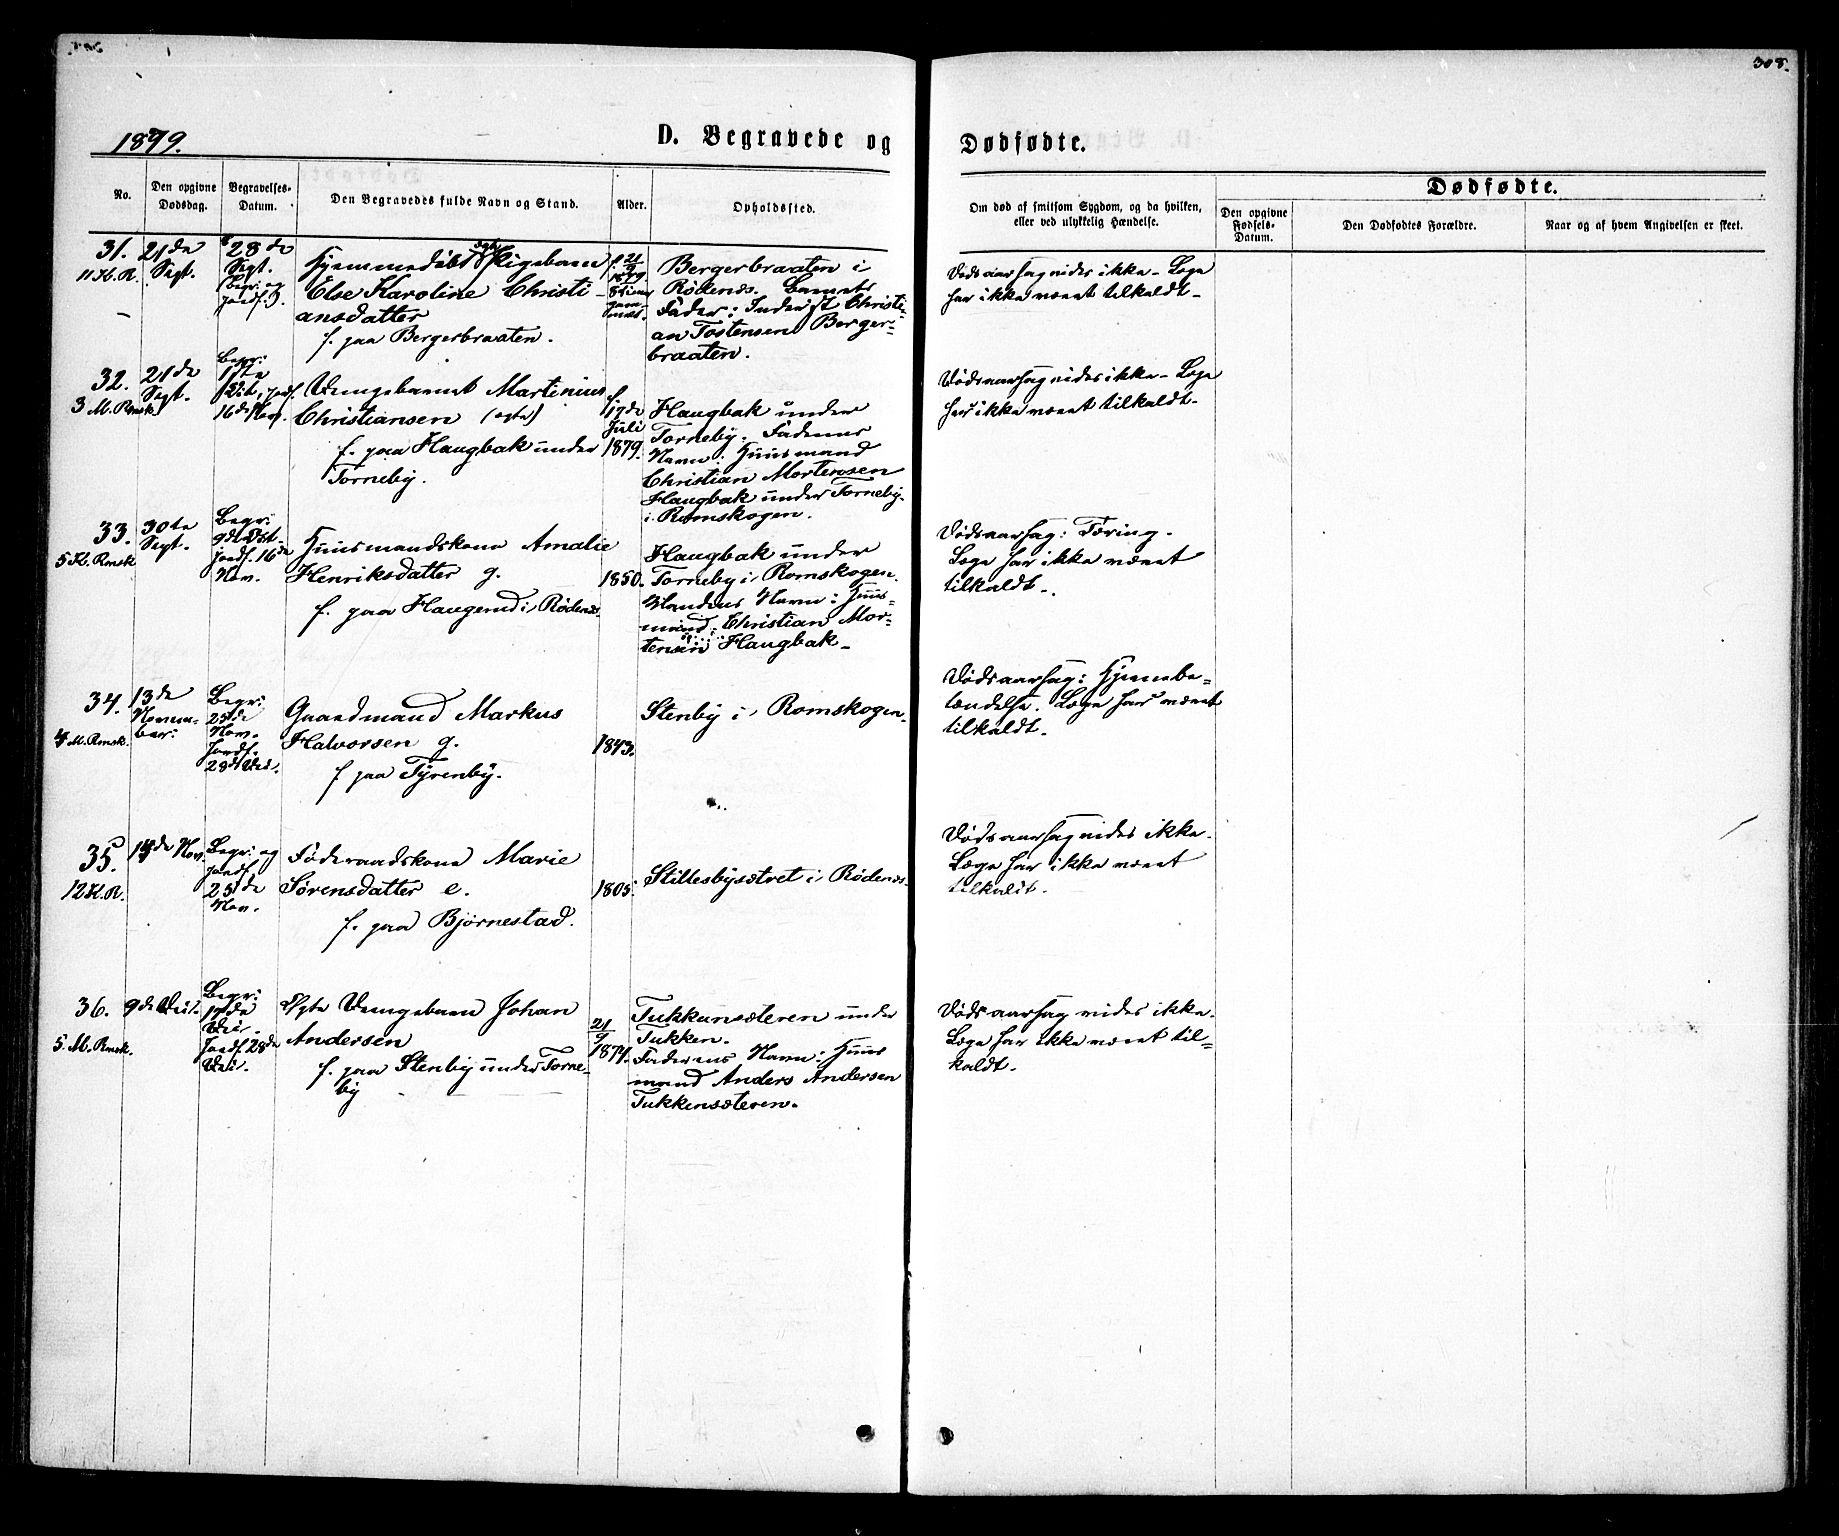 308.
1879.
D. Begravede og Dødfødte.
No.
Den opgivne Dødsdag.
Begravelses-Datum.
Den Begravedes fulde Navn og Stand.
Alder.
Opholdssted.
Om død af smitsom Sygdom, og da hvilken, eller ved ulykkelig Hændelse.
Dødfødte.
Den opgivne Fødsels-Datum.
Den Dødfødtes Forældre.
Naar og af hvem Angivelsen er skeet.
31.
11 K. R.
21de
Sept.
28de
Sept.
Begr: og
Jordf.
Hjemmedøbt ægte Pigebarn
Else Karoline Christi-
ansdatter
f. paa Bergerbraaten.
f. 21/9
1879
8 Timer
gam-
melt.
Bergerbraaten i
Rødenæs. Barnets
Fader: Inderst Christi-
an Tostensen Berger-
braaten.
Dødsaarsag vides ikke - Læge
har ikke været tilkaldt -
32.
3 M. Rmsk.
21de
Sept.
Begr:
1ste
Oct., Jordf.
16de Nov.
Drengebarnet Martinius
Christiansen (ægte)
f. paa Haugbak under
Torneby.
f.
17de
Juli
1879.
Haugbak under
Torneby. Faderens
Navn: Huusmand
Christian Mortensen
Haugbak under Torneby
i Romskogen.
Dødsaarsag vides ikke - Læge
har ikke været tilkaldt -
33.
5 K. Rmsk
30te
Sept.
Begr:
9de Oct.
Jordf. 16de
Nov.
Huusmandskone Amalie
Henriksdatter g.
f. paa Haugerud i Rødenæs
1850.
Haugbak under
Torneby i Romskogen.
Mandens Navn: Huus-
mand Christian Mor-
tensen Haugbak -
Dødsaarsag: Tæring -
Læge har ikke været
tilkaldt -
34.
4 M. Rmsk.
13de
Novem-
ber.
Begr:
25de
Nov.
Jordf.
28de Dec.
Gaardmand Markus
Halvorsen g.
f. paa Tyrenby.
1843.
Stenby i Romskogen.
Dødsaarsag: Hjernebe-
tændelse. Læge har været
tilkaldt -
35.
12 K. R.
14de Nov.
Begr: og
Jordf.
25de
Nov.
Føderaadskone Marie
Sørensdatter e.
f. paa Bjørnestad.
1805.
Stillesbysætret i Rødenæs.
Dødsaarsag vides ikke.
Læge har ikke været
tilkaldt -
36.
5. M. Rmsk.
9de Dec.
Begr:
17de
Dec.
Jordf. 28de
Dec.
Ægte Drengebarn Johan
Andersen
f. paa Stenby under Torne-
by
21/9
1874.
Tukkunsæteren under
Tukken.
Faderens Navn: Huus
mand Anders Andersen
Tukkensæteren.
Dødsaarsag vides ikke.
Læge har ikke været til-
kaldt -